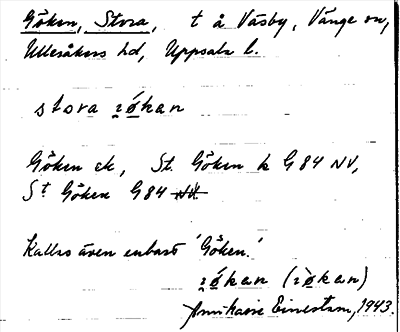 Göken, Stora, t å Väsby, Vänge sn,
Ulleråkers hd, Uppsala l.
stora ıǿkan
Göken ek, St. Göken k G 84 NV,
St Göken G 84 NV
Kallas även enbart 'Göken.'
ıǿkan (ıø̀kan)
Einestam, 1943.